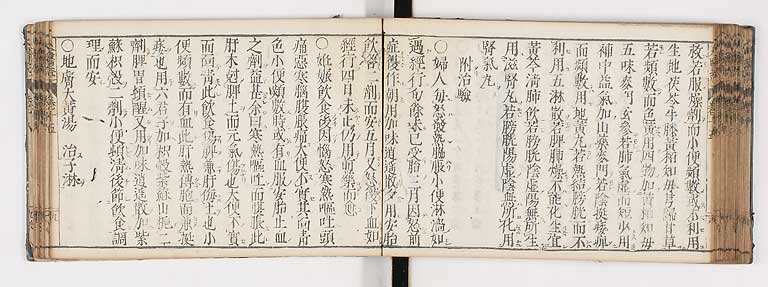 救若服燥劑而小便頻數或不利用
生地茯苓牛膝黃栢知母芎歸甘草
若頻數而色黃用四物加黃栢知母
五味麥門玄參若肺氣虛而短少用
補中益氣加山藥麥門若陰挺痿痺
而頻數用地黃丸若熱結膀胱而不
利用五淋散若脾肺燥不能化生宜
黃芩清肺飲若膀胱陰虛陽無所生
用滋腎丸若膀胱陽虛陰無所化用
腎氣丸
附治驗
○婦人每怒發熱脇脹小便淋濇如
遇經行旬餘未已受胎三月因怒前
症復作朝用加味逍遙散夕用安胎
飲各二劑而安五月又怒復下血如
經行四日未止仍用前藥而愈
○妊娠飲食後因惱怒寒熱嘔吐頭
痛惡寒胸腹脹痛大便不實其面青
色小便頻數時或有血服安胎止血
之劑益甚余曰寒熱嘔吐而腹脹此
肝木尅脾土而元氣傷也大便不實
而面青此飲食傷脾兼肝侮土也小
便頻數而有血此肝熱傳胞而兼挺
痿也用六君子加枳殼紫蘇山梔二
劑脾胃頓醒又用加味逍遙散加紫
蘇枳殼二劑小便頓清後節飲食調
理而安
○地膚大黃湯 治子淋